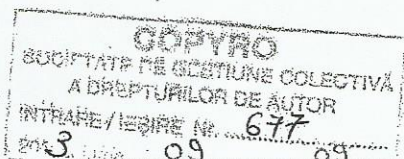 COPYRO
SOCIETATE DE GESTIUNE COLECTIVĂ
A DREPTURILOR DE AUTOR
INTRARE/IEȘIRE Nr. 677
3 09 09